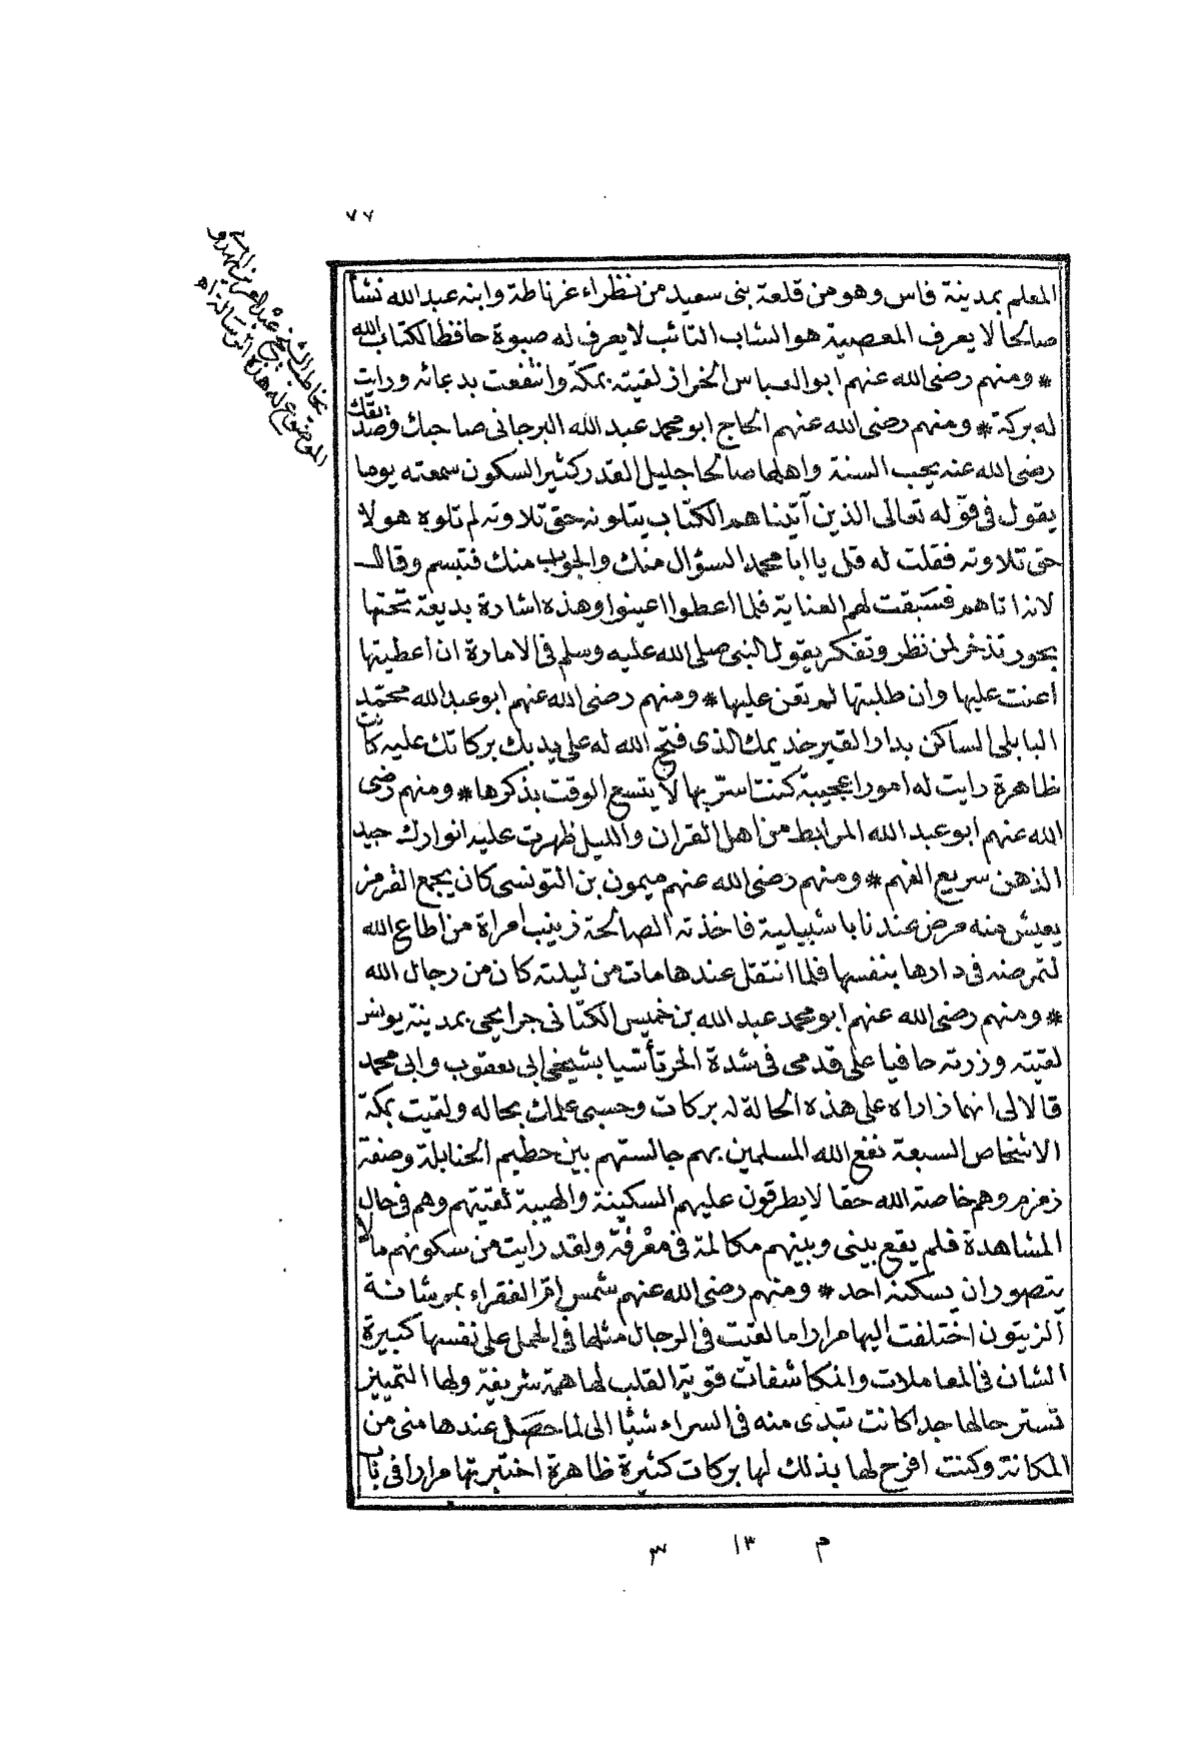 ٧٧
يخاطب الشيخ عبد العزيز المهدوي
الموضوع له هذه الرسالة اه
المعلم بمدينة فاس وهو من قلعة بنى سعيد من نظراء غرناطة وابنه عبد الله نشأ
صالحا لا يعرف المعصية هو الشاب التائب لا يعرف له صبوة حافظا لكتاب الله
* ومنهم رضى الله عنهم ابو العباس الخراز لقيته بمكة وانتفعت بدعائه ورات
له بركة * ومنهم رضى الله عنهم الحاج ابو محمد عبد الله البرجانى صاحبك وصديقك
رضى الله عنه يحب السنة واهلها صالحا جليل القدر كثير السكون سمعته يوما
يقول فى قوله تعالى الذين آتيناهم الكتاب يتلونه حق تلاوته لم تلوه هولا
حق تلاوته فقلت له قل يا ابا محمد السؤال منك والجواب منك فتبسم وقال
لانه اتاهم فسبقت لهم العناية فلما اعطوا اعينوا وهذه اشارة بديعة تحتها
بحور تذخر لمن نظر وتفكر يقول النبى صلى الله عليه وسلم فى الامارة ان اعطيتها
اعنت عليها وان طلبتها لم تعن عليها * ومنهم رضى الله عنهم ابو عبد الله محمد
البابلى الساكن بدار القير خديمك الذى فتح الله له على يديك بركاتك عليه كانت
ظاهرة رايت له امورا عجيبة كنت اسر بها لا يتسع الوقت بذكرها * ومنهم رضى
الله عنهم ابو عبد الله المرابط من اهل القران والليل ظهرت عليه انوارك جيد
الذهن سريع الفهم * ومنهم رضى الله عنهم ميمون بن التونسى كان يجمع القرمز
يعيش منه مرض عندنا باشبيلية فاخذته الصالحة زينب امراة من اطاع الله
لتمرضه فى دارها بنفسها فلما انتقل عندها مات من ليلته كان من رجال الله
* ومنهم رضى الله عنهم ابو محمد عبد الله بن خميس الكنانى جرايحى بمدينة يونس
لقيته وزرته حافيا على قدمى فى شدة الحر تأسيا بشيخى ابى يعقوب وابى محمد
قالا لى انهما زاراه على هذه الحالة له بركات وحسبى علمك بحاله ولقيت بمكة
الاشخاص السبعة نفع الله المسلمين بهم جالستهم بين حطيم الحنابلة وصفة
زمزم وهم خاصة الله حقا لا يطرقون عليهم السكينة والهيبة لقيتهم وهم فى حال
المشاهدة فلم يقع بينى وبينهم مكالمة فى معرفة ولقد رايت من سكونهم مالا
يتصور ان يسكنه احد * ومنهم رضى الله عنهم شمس ام الفقراء بمرشانة
الزيتون اختلفت اليها مرارا ما لقيت فى الرجال مثلها فى الحمل على نفسها كبيرة
الشان فى المعاملات والمكاشفات قوية القلب لها همة شريفة ولها التمييز
تستر حالها جدا كانت تبدى منه فى السراء شيئا الى لما حصل عندها منى من
المكانة وكنت افرح لها بذلك لها بركات كثيرة ظاهرة اختبرتها مرارا فى باب
م ١٣ ٣